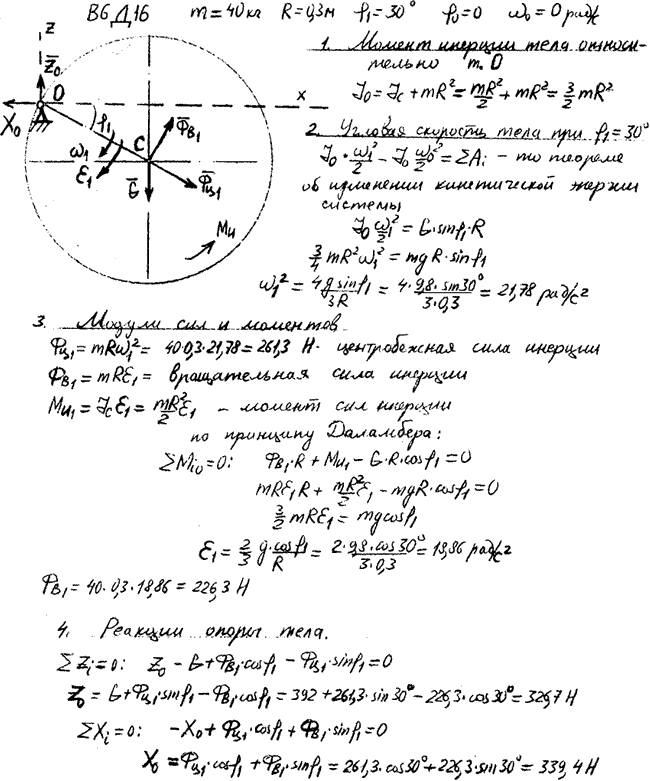 В6 Д16 m = 40 кг R = 0,3 м φ₁ = 30° φ₀ = 0 ω₀ = 0 рад/с
z
Z̄₀
O
A
X₀
x
φ₁
C
Φ̄в₁
ω₁
ε₁
Ḡ
Φ̄ц₁
Mи
1. Момент инерции тела относи-
тельно т. О
J₀ = Jc + mR² = mR²/2 + mR² = 3/2 mR²
2. Угловая скорость тела при φ₁ = 30°
J₀·ω₁²/2 − J₀ω₀²/2 = ΣAᵢ – по теореме
об изменении кинетической энергии
системы
J₀ω₁²/2 = G·sinφ₁·R
3/4 mR²ω₁² = mgR·sinφ₁
ω₁² = 4g sinφ₁/3R = 4·9,8·sin30°/3·0,3 = 21,78 рад/с²
3. Модули сил и моментов
Φц₁ = mRω₁² = 40·0,3·21,78 = 261,3 Н - центробежная сила инерции
Φв₁ = mRε₁ = вращательная сила инерции
Mи₁ = Jcε₁ = mR²/2 ε₁ – момент сил инерции
по принципу Даламбера:
ΣMᵢ₀ = 0: Φв₁·R + Mи₁ − G·R·cosφ₁ = 0
mRε₁R + mR²/2 ε₁ − mgR·cosφ₁ = 0
3/2 mRε₁ = mgcosφ₁
ε₁ = 2/3 g·cosφ₁/R = 2·9,8·cos30°/3·0,3 = 18,86 рад/с²
Φв₁ = 40·0,3·18,86 = 226,3 Н
4. Реакции опоры тела.
ΣZᵢ = 0: Z₀ − G + Φв₁·cosφ₁ − Φц₁·sinφ₁ = 0
Z₀ = G + Φц₁·sinφ₁ − Φв₁·cosφ₁ = 392 + 261,3·sin30° − 226,3·cos30° = 326,7 Н
ΣXᵢ = 0: −X₀ + Φц₁·cosφ₁ + Φв₁·sinφ₁ = 0
X₀ = Φц₁·cosφ₁ + Φв₁·sinφ₁ = 261,3·cos30° + 226,3·sin30° = 339,4 Н